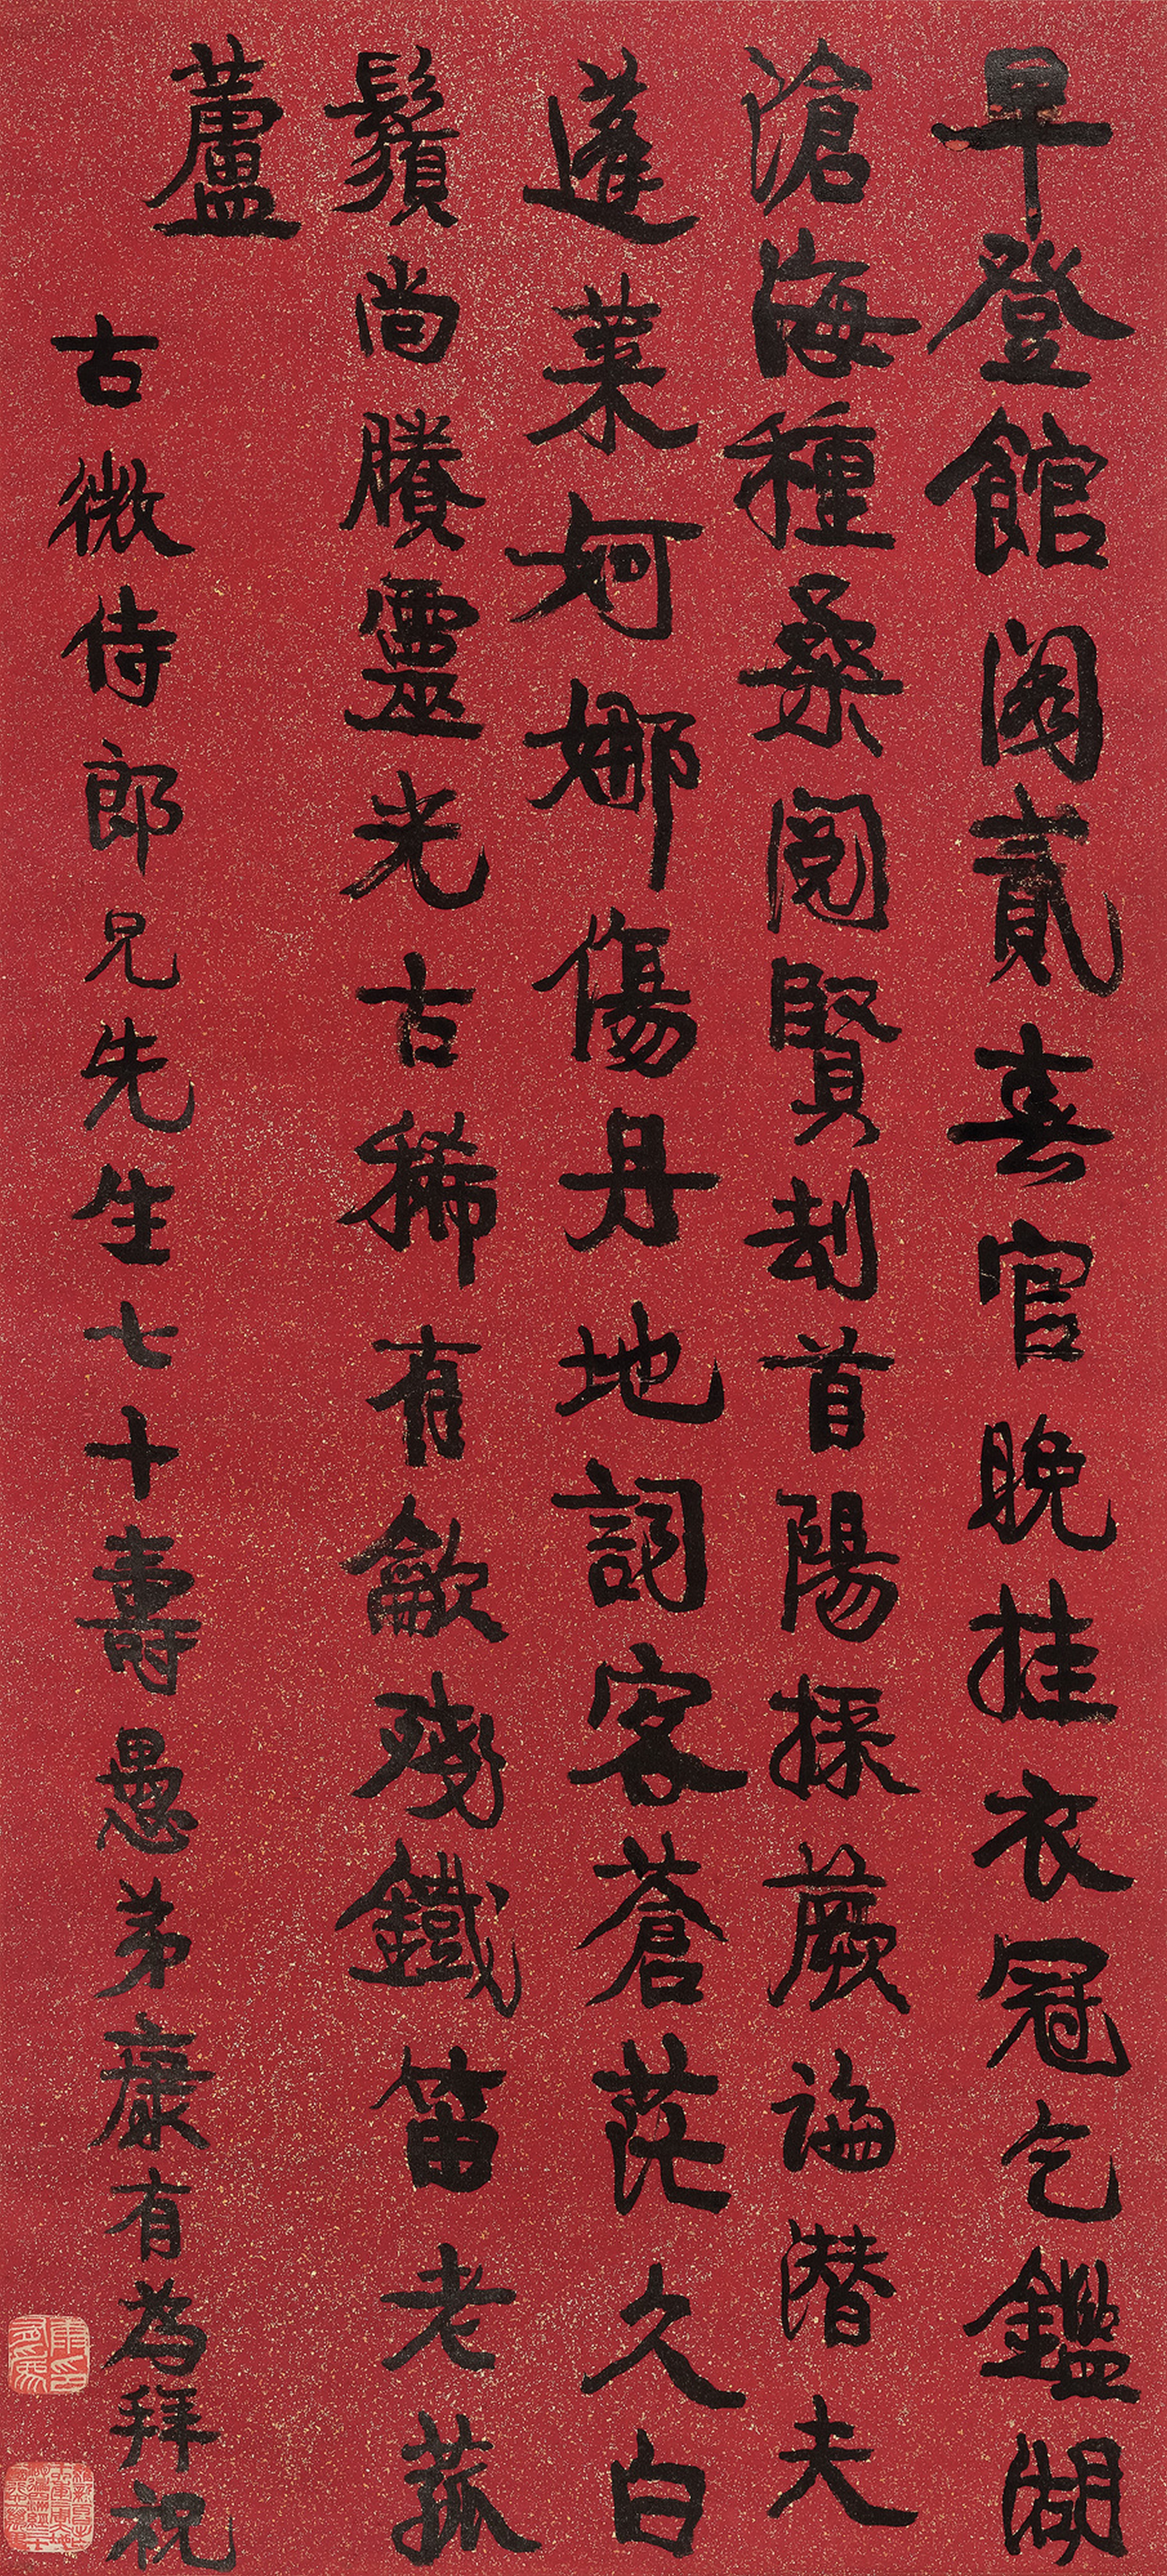 早登館閣貳春官晚挂衣冠乞鑑湖
滄海種桑閱賢劫首陽採蕨論潛夫
蓬萊婀娜傷丹地詞客蒼茫久白
鬚尚賸靈光古稀有歛殘鐵笛老菰
蘆
古微侍郎兄先生七十壽愚弟康有為拜祝